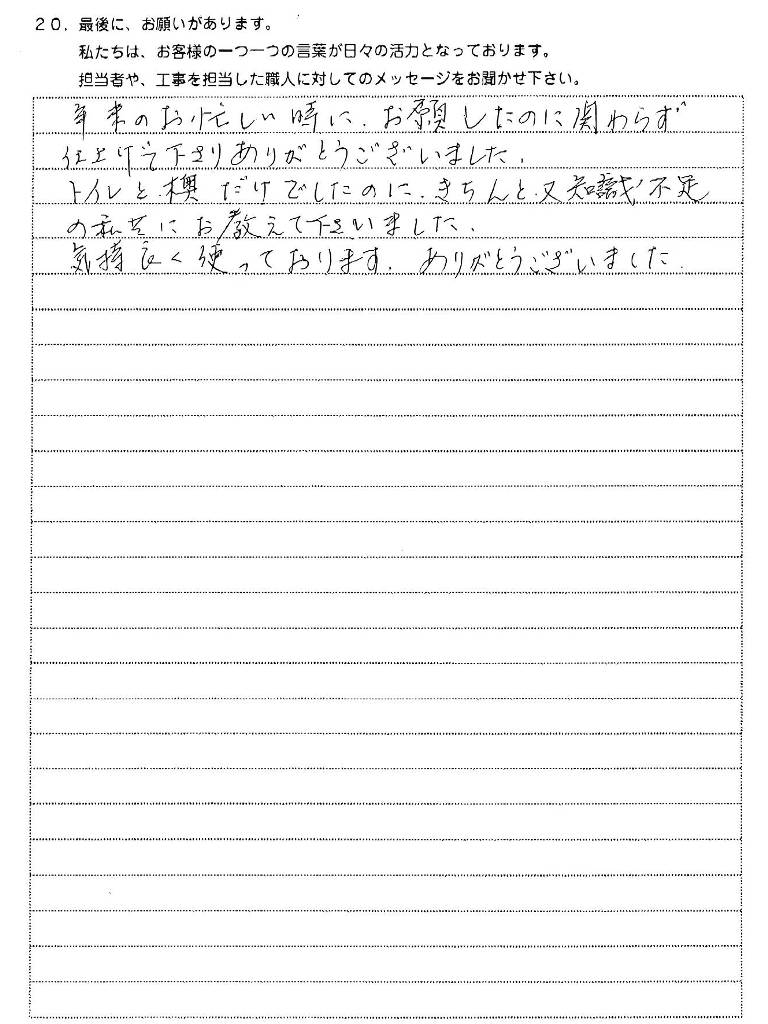 20. 最後に、お願いがあります。
私たちは、お客様の一つ一つの言葉が日々の活力となっております。
担当者や、工事を担当した職人に対してのメッセージをお聞かせ下さい。
年末のお忙しい時に、お願したのに関わらず
仕上げて下さりありがとうございました。
トイレと襖だけでしたのに、きちんと又知識不足
の私共にお教えて下さいました。
気持良く使っております。ありがとうございました。